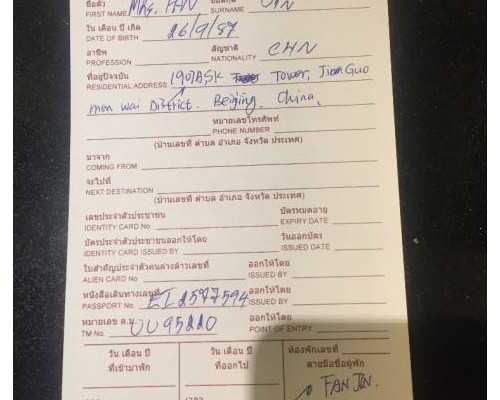 ชื่อตัว Mrs. FAN ชื่อสกุล JIN
FIRST NAME SURNAME
วัน เดือน ปี เกิด 26/9/87
DATE OF BIRTH
อาชีพ สัญชาติ CHN
PROFESSION NATIONALITY
ที่อยู่ปัจจุบัน 1901 ASK Tower, Jian Guo
RESIDENTIAL ADDRESS
men wai District. Beijing. China.
หมายเลขโทรศัพท์
PHONE NUMBER
(บ้านเลขที่ ตำบล อำเภอ จังหวัด ประเทศ)
มาจาก
COMING FROM
จะไปที่
NEXT DESTINATION (บ้านเลขที่ ตำบล อำเภอ จังหวัด ประเทศ)
เลขประจำตัวประชาชน บัตรหมดอายุ
IDENTITY CARD No. EXPIRY DATE
บัตรประจำตัวประชาชนออกให้โดย วันออกบัตร
IDENTITY CARD ISSUED BY ISSUED DATE
ใบสำคัญประจำตัวคนต่างด้าวเลขที่ ออกให้โดย
ALIEN CARD No. ISSUED BY
หนังสือเดินทางเลขที่ ออกให้โดย
PASSPORT No. EI2577594 ISSUED BY
หมายเลข ต.ม. UU95220 ออกให้โดย
TM No. POINT OF ENTRY
วัน เดือน ปี วัน เดือน ปี ห้องพักเลขที่
ที่เข้ามาพัก ที่ออกไป ลายมือชื่อผู้พัก
FAN JIN.